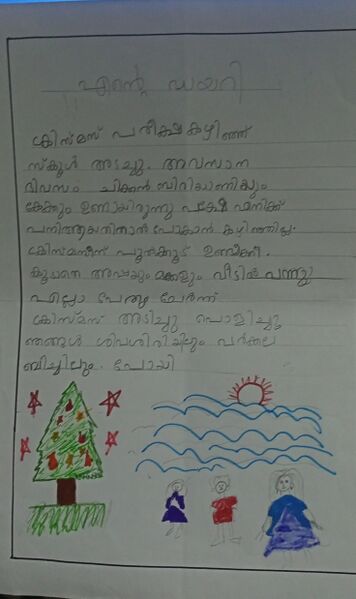 എന്റെ ഡയറി
ക്രിസ്മസ് പരീക്ഷ കഴിഞ്ഞ്
സ്കൂൾ അടച്ചു. അവസാന
ദിവസം ചിക്കൻ ബിരിയാണിയും
കേക്കും ഉണ്ടായിരുന്നു പക്ഷേ എനിക്ക്
പനിആയതിനാൽ പോകാൻ കഴിഞ്ഞില്ല.
ക്രിസ്മസിന് പുൽക്കൂട് ഉണ്ടാക്കി.
കൂടാതെ മക്കളും വീട്ടിൽ വന്നു
എല്ലാ പേരും ചേർന്ന്
ക്രിസ്മസ് അടിച്ചു പൊളിച്ചു
ഞങ്ങൾ ശിവഗിരിയിലും വർക്കല
ബീച്ചിലും. പോയി